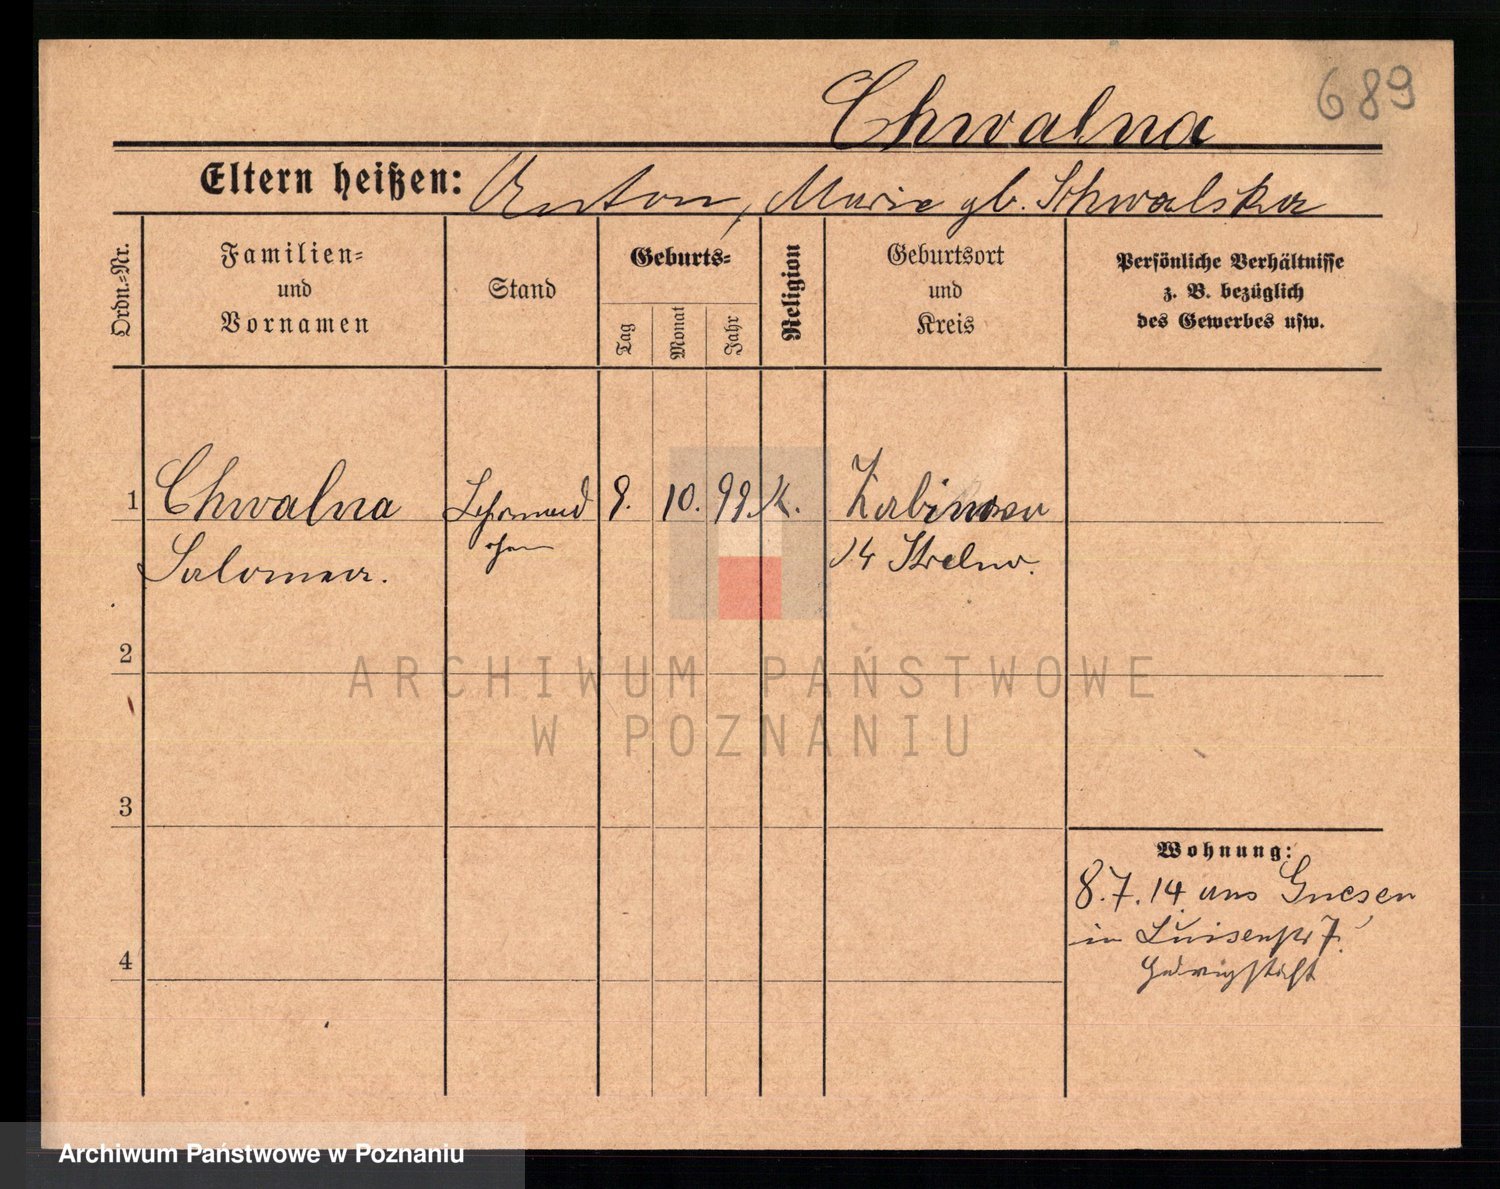 689
Chwalna
Eltern heißen: Anton, Marie gb. Schwalska
Ordn.=Nr.
Familien=
und
Vornamen
Stand
Geburts=
Tag
Monat
Jahr
Religion
Geburtsort
und
Kreis
Persönliche Verhältnisse
z. B. bezüglich
des Gewerbes usw.
1 Chwalna 8. 10. 99. K.
Salomea. Strelno.
2
ARCHIWUM PAŃSTWOWE
W POZNANIU
3
Wohnung:
8.7.14 aus Gnesen
in Luisenstr 7.
4
Archiwum Państwowe w Poznaniu